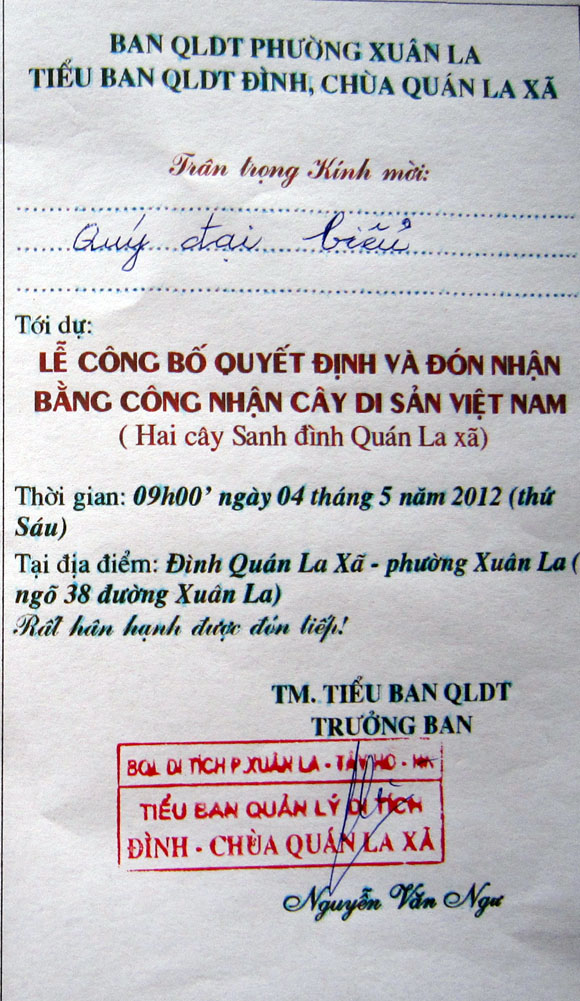 BAN QLDT PHƯỜNG XUÂN LA
TIỂU BAN QLDT ĐÌNH, CHÙA QUÁN LA XÃ
Trân trọng Kính mời:
Quý đại biểu
Tới dự:
LỄ CÔNG BỐ QUYẾT ĐỊNH VÀ ĐÓN NHẬN
BẰNG CÔNG NHẬN CÂY DI SẢN VIỆT NAM
( Hai cây Sanh đình Quán La xã)
Thời gian: 09h00’ ngày 04 tháng 5 năm 2012 (thứ
Sáu)
Tại địa điểm: Đình Quán La Xã - phường Xuân La (
ngõ 38 đường Xuân La)
Rất hân hạnh được đón tiếp!
TM. TIỂU BAN QLDT
TRƯỞNG BAN
BQL DI TÍCH P.XUÂN LA - TÂY HỒ - HN
TIỂU BAN QUẢN LÝ DI TÍCH
ĐÌNH - CHÙA QUÁN LA XÃ
Nguyễn Văn Ngư